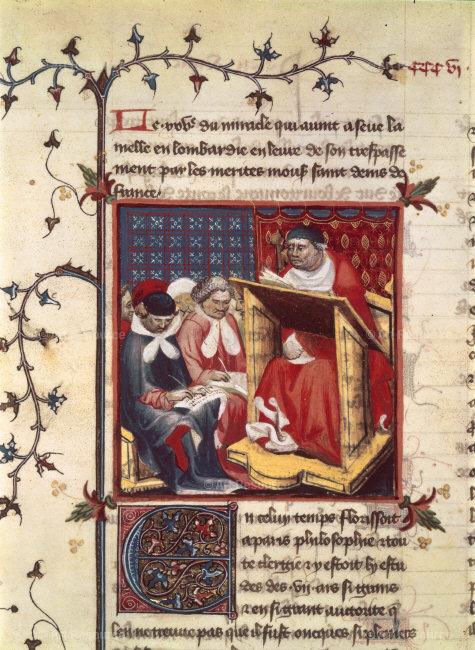 ccc vi.
Le du miracle qui avint a seve la
melle en lombardie en leure de son trespasse
ment par les merites mons saint denis de
france.
En celuy temps florissoit
a paris philosophie & tou
te clergie & y estoit lestu
des des .vii. ars si grans
& en si grant auctorite q
len ne treuve pas que il fust onques si pleniers